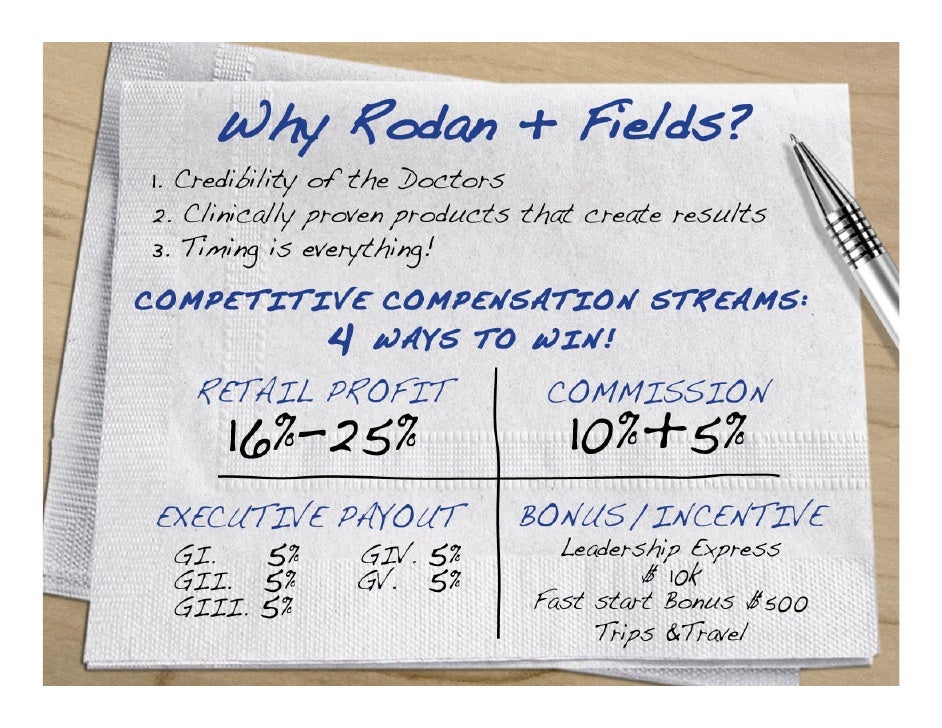 Why Rodan + Fields?
1. Credibility of the Doctors
2. Clinically proven products that create results
3. Timing is everything!
COMPETITIVE COMPENSATION STREAMS:
4 WAYS TO WIN!
RETAIL PROFIT
16%-25%
COMMISSION
10%+5%
EXECUTIVE PAYOUT
GI. 5% GIV. 5%
GII. 5% GV. 5%
GIII. 5%
BONUS/INCENTIVE
Leadership Express
$ 10K
Fast start Bonus $500
Trips &Travel